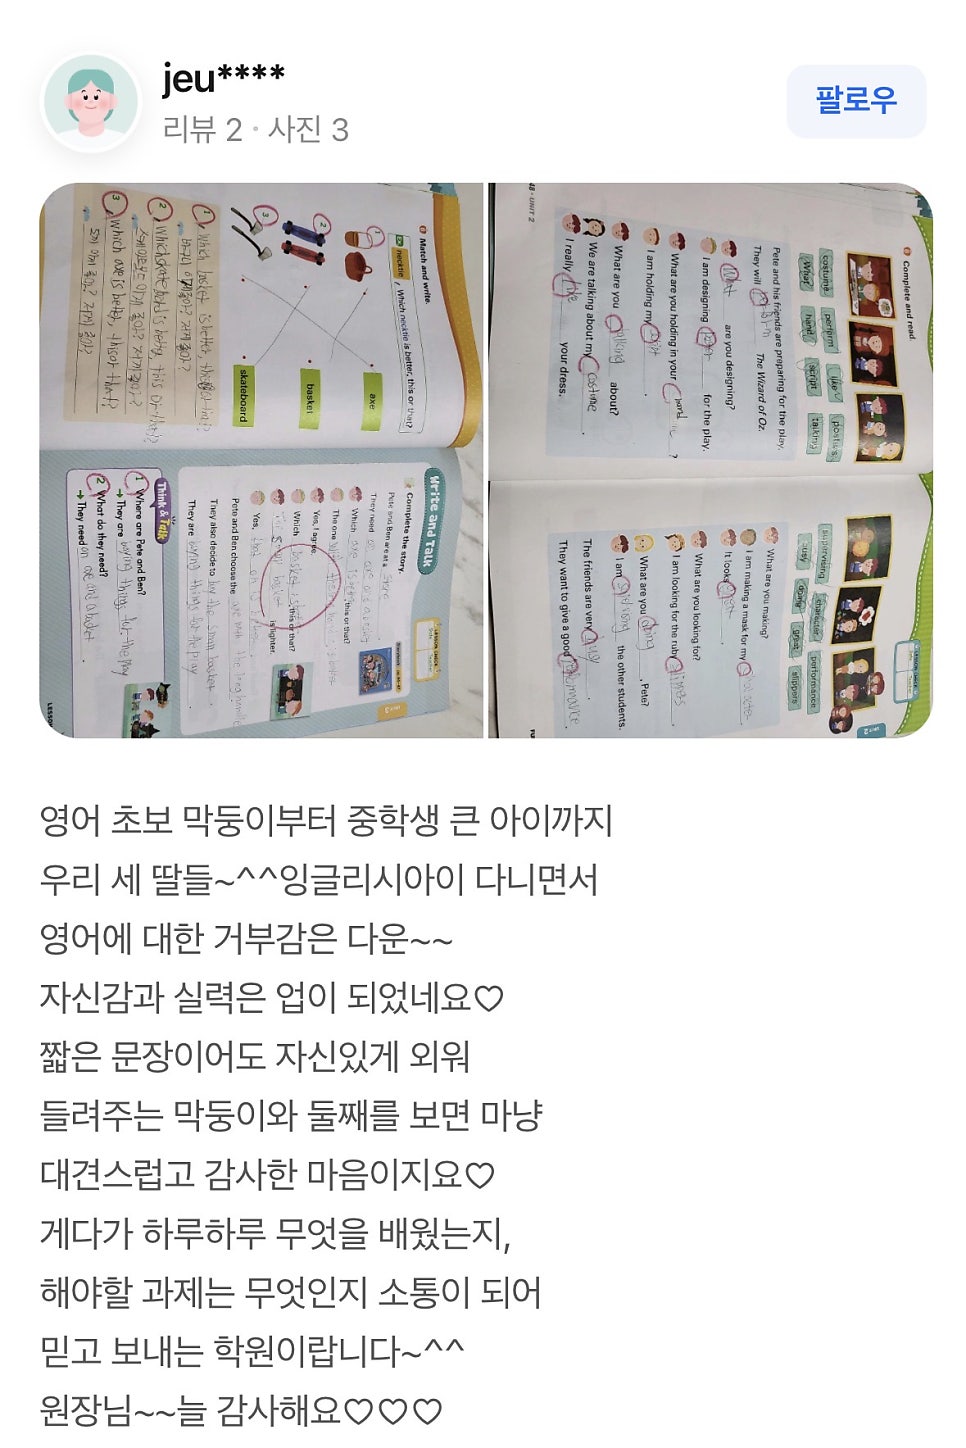 jeu****
리뷰 2 · 사진 3
팔로우
Match and write.
necktie
Which necktie is better, this or that?
axe
basket
skateboard
Write and Talk
Complete the story.
Pete and Ben are at a
They need
Which
, this or that?
The one
Yes, I agree.
Which
this or that?
is lighter.
Yes,
Pete and Ben choose the
They also decide to
They are
Think & Talk
1 Where are Pete and Ben?
→ They are
2 What do they need?
→ They need
UNIT 2
Complete and read.
costume
perform
like
posters
What
hand
script
talking
Pete and his friends are preparing for the play.
They will
The Wizard of Oz.
What are you designing?
I am designing
for the play.
What are you holding in your hand?
I am holding my
What are you talking about?
We are talking about my costume.
I really like your dress.
supervising
character
performance
busy
doing
great
slippers
What are you making?
I am making a mask for my
It looks
What are you looking for?
I am looking for the ruby
What are you doing, Pete?
I am
the other students.
The friends are very busy.
They want to give a good performance.
영어 초보 막둥이부터 중학생 큰 아이까지
우리 세 딸들~^^잉글리시아이 다니면서
영어에 대한 거부감은 다운~~
자신감과 실력은 업이 되었네요♡
짧은 문장이어도 자신있게 외워
들려주는 막둥이와 둘째를 보면 마냥
대견스럽고 감사한 마음이지요♡
게다가 하루하루 무엇을 배웠는지,
해야할 과제는 무엇인지 소통이 되어
믿고 보내는 학원이랍니다~^^
원장님~~늘 감사해요♡♡♡